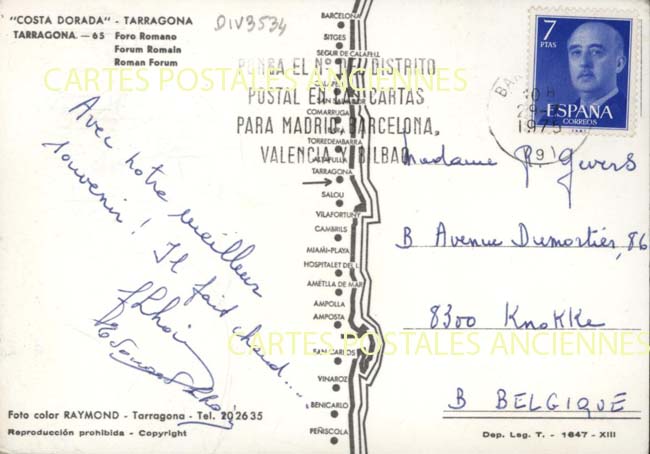 "COSTA DORADA" - TARRAGONA
TARRAGONA. — 65 Foro Romano
Forum Romain
Roman Forum
DIV3534
BARCELONA
SITGES
SEGUR DE CALAFELL
COMARRUGA
TORREDEMBARRA
ALTAFULLA
TARRAGONA
SALOU
VILAFORTUNY
CAMBRILS
MIAMI-PLAYA
HOSPITALET DEL I.
AMETLLA DE MAR
AMPOLLA
AMPOSTA
SAN CARLOS
VINAROZ
BENICARLO
PEÑISCOLA
PONGA EL Nº DEL DISTRITO
POSTAL EN LAS CARTAS
PARA MADRID, BARCELONA,
VALENCIA Y BILBAO
7
PTAS
ESPAÑA
CORREOS
1975
Avec notre meilleur
souvenir! Il fait chaud....
Madame R. Gevers
B Avenue Dumortier, 86
8300 Knokke
B BELGIQUE
Foto color RAYMOND - Tarragona - Tel. 202635
Reproducción prohibida - Copyright
Dep. Leg. T. - 1647 - XIII
CARTES POSTALES ANCIENNES
CARTES POSTALES ANCIENNES